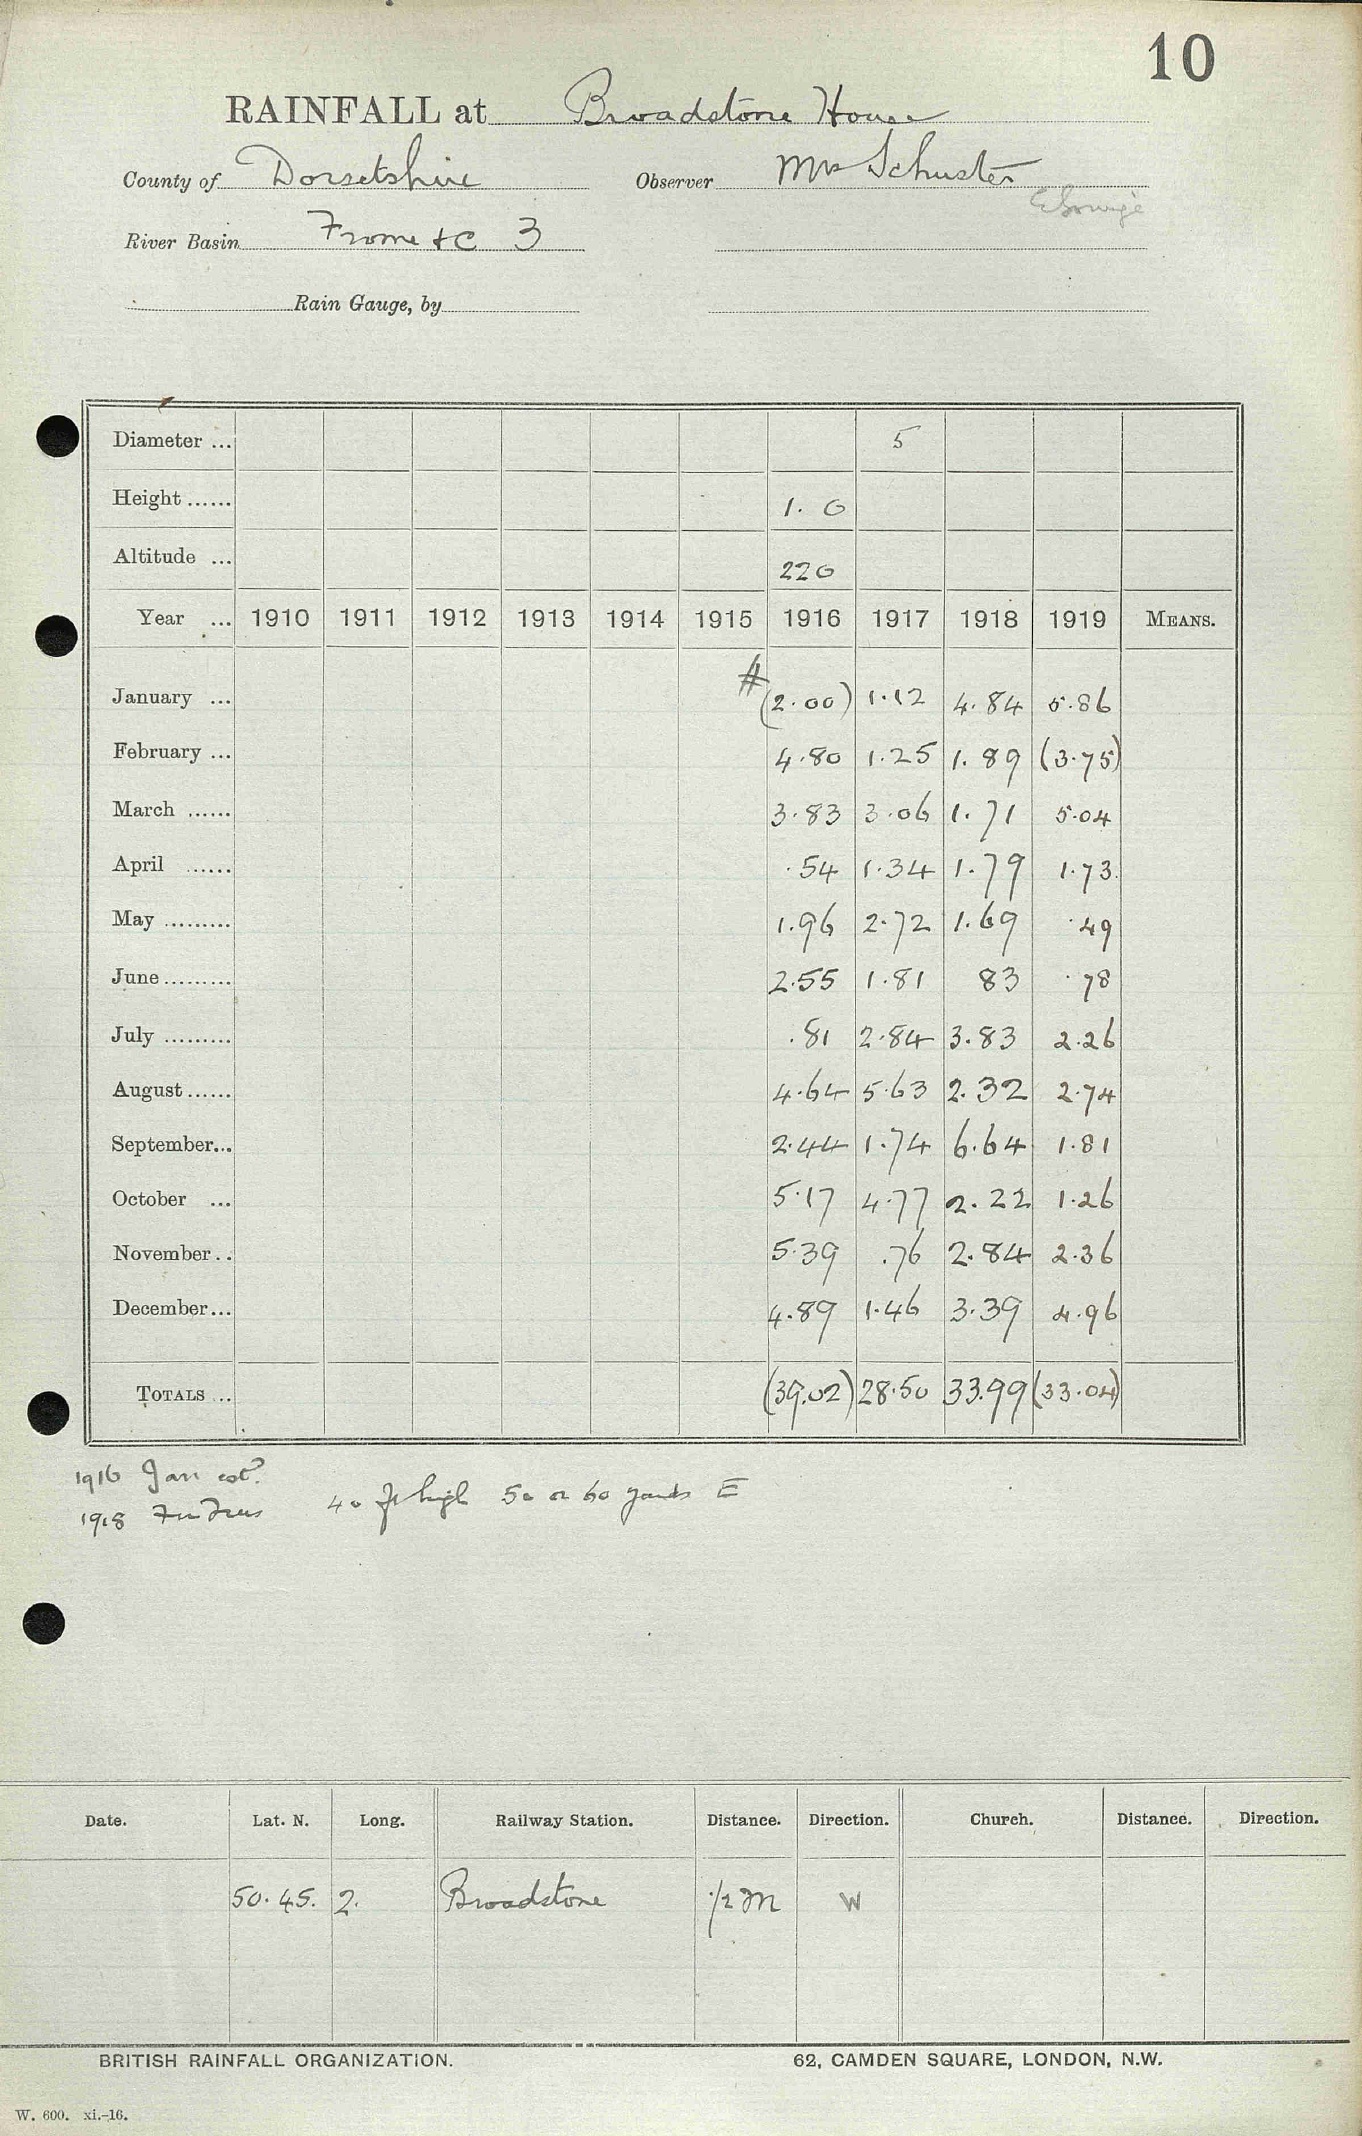 10
RAINFALL at Broadstone House
County of Dorsetshire Observer Mrs Schuster
River Basin Frome &c 3
Rain Gauge, by
Diameter ... 5
Height ...... 1. 0
Altitude ... 220
Year ... 1910 1911 1912 1913 1914 1915 1916 1917 1918 1919 MEANS.
January ... # (2.00) 1.12 4.84 5.86
February ... 4.80 1.25 1.89 (3.75)
March ...... 3.83 3.06 1.71 5.04
April ...... .54 1.34 1.79 1.73
May ......... 1.96 2.72 1.69 .49
June ......... 2.55 1.81 83 .78
July ......... .81 2.84 3.83 2.26
August ...... 4.64 5.63 2.32 2.74
September... 2.44 1.74 6.64 1.81
October ... 5.17 4.77 2.22 1.26
November .. 5.39 .76 2.84 2.36
December... 4.89 1.46 3.39 4.96
TOTALS ... (39.02) 28.50 33.99 (33.04)
1916 Jan est.
1918 Fir Trees 40 ft high 50 or 60 yards E
Date. Lat. N. Long. Railway Station. Distance. Direction. Church. Distance. Direction.
50. 45. 2. Broadstone 1/2 m W
BRITISH RAINFALL ORGANIZATION. 62, CAMDEN SQUARE, LONDON, N.W.
W. 600. xi.-16.